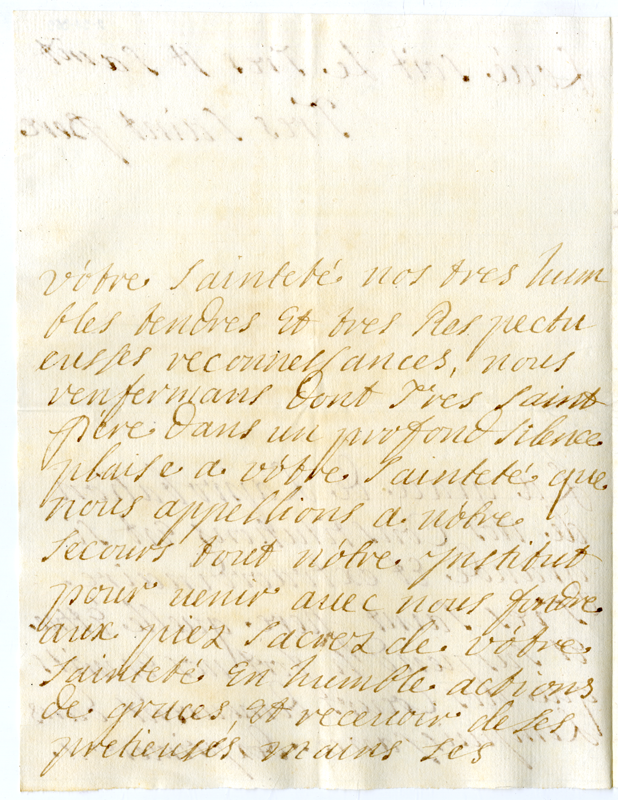 vôtre Sainteté nos tres hum
bles tendres Et tres Res pectu
eusses reconnessances, nous
renfermans dont Tres Saint
père dans un profond silence
plaise a vôtre Sainteté que
nous appellions a nôtre
secours tout nôtre Institut
pour venir avec nous fondre
aux piez sacrez de vôtre
Sainteté En humble actions
de graces et recevoir de ses
pretieuses mains ses